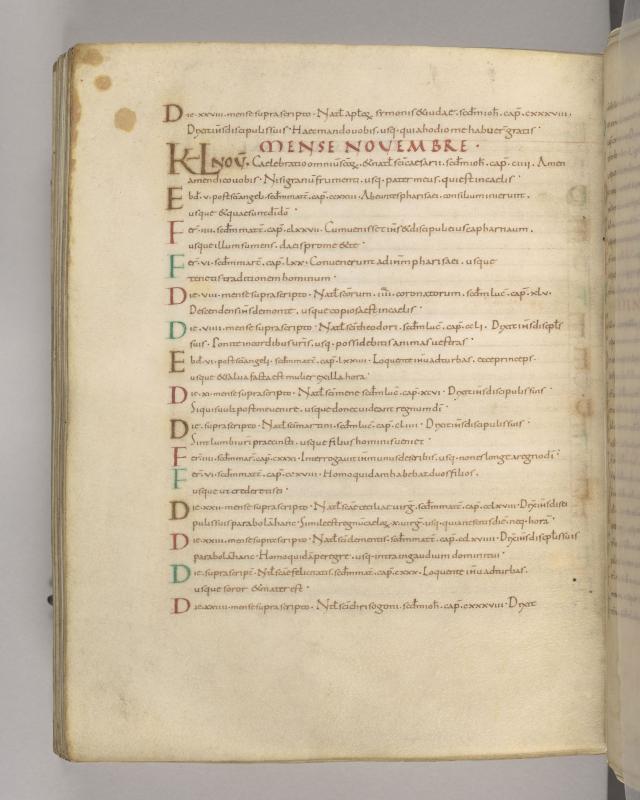 Die·xxviii·mense suprascripto·Natl aptor̄ symonis & iudae·scdm ioh̄·cap̄·cxxxviiii·
Dixit ih̄s discipulis suis·Haec mando vobis·usq· quia hodio me habuer gratis·
MENSE NOVEMBRE·
KL NOV̄·Caelebratio omnium scōr̄·& natl sc̄i caesarii·scdm ioh̄·cap̄·ciiii·Amen
amen dico vobis·Nisi granum frumenti·usq· pater meus·qui est in caelis·
Ebd·v·post sc̄i angeli·scdm matt̄·cap̄·ccxxiii·Abeuntes pharisaei·consilium inierunt·
usque & quae sunt dī dō·
Fer̄·iiii·scdm matt̄·cap̄·clxxvii·Cum venisset ih̄s & discipuli eius capharnaum·
usque illum sumens·da eis pro me & te·
Fer̄·vi·scdm marc̄·cap̄·lxx·Convenerunt ad ih̄m pharisaei·usque
tenetis traditionem hominum·
Die·viii·mense suprascripto·Natl scōrum·iiii·coronatorum·scdm luc̄·cap̄·xlv·
Descendens ih̄s de monte·usque copiosa est in caelis·
Die·viiii·mense suprascripto·Natl sc̄i theodori·scdm luc̄·cap̄·ccli·Dixit ih̄s discipl̄s
suis·Ponite in cordibus ur̄is·usq· possidebitis animas uestras·
Ebd·vi·post sc̄i angeli·scdm matt̄·cap̄·lxxiiii·Loquente ih̄u ad turbas·ecce princeps·
usque & salua facta est mulier ex illa hora·
Die·xi·mense suprascripto·Natl sc̄i mene scdm luc̄·cap̄·xcvi·Dixit ih̄s discipulis suis·
Si quis uult post me uenire·usque donec uideant regnum dī·
Die·suprascripto·Natl sc̄i martini·scdm luc̄·cap̄·cliiii·Dixit ih̄s discipulis suis·
Sint lumbi ur̄i praecincti·usque filius hominis ueniet·
Fer̄·iiii·scdm marc̄·cap̄·cxxxi·Interrogauit ih̄m unus de scribis·usq· non es longe a regno dī·
Fer̄·vi·scdm matt̄·cap̄·ccxviii·Homo quidam habebat duos filios·
usque ut crederetis ei·
Die·xxii·mense suprascripto·Natl sc̄ae ceciliae uirḡ·scdm matt̄·cap̄·cclxviii·Dix̄ ih̄s disci
pulis suis parabolā hanc·Simile est regnū caelor̄·x·uirḡ·usq· quia nescitis diē·neq· horā·
Die·xxiii·mense suprascripto·Natl sc̄i clementis·scdm matt̄·cap̄·cclxviiii·Dix̄ ih̄s discipulis suis
parabolā hanc·Homo quidā peregre·usq· intra in gaudium domini tui·
Die·suprascript̄·Ntl sc̄ae felicitatis·scdm matt̄·cap̄·cxxx·Loquente ih̄u ad turbas·
usque soror & mater est·
Die·xxiiii·mense suprascripto·Ntl sc̄i chrisogoni·scdm ioh̄·cap̄·cxxxviiii·Dixit